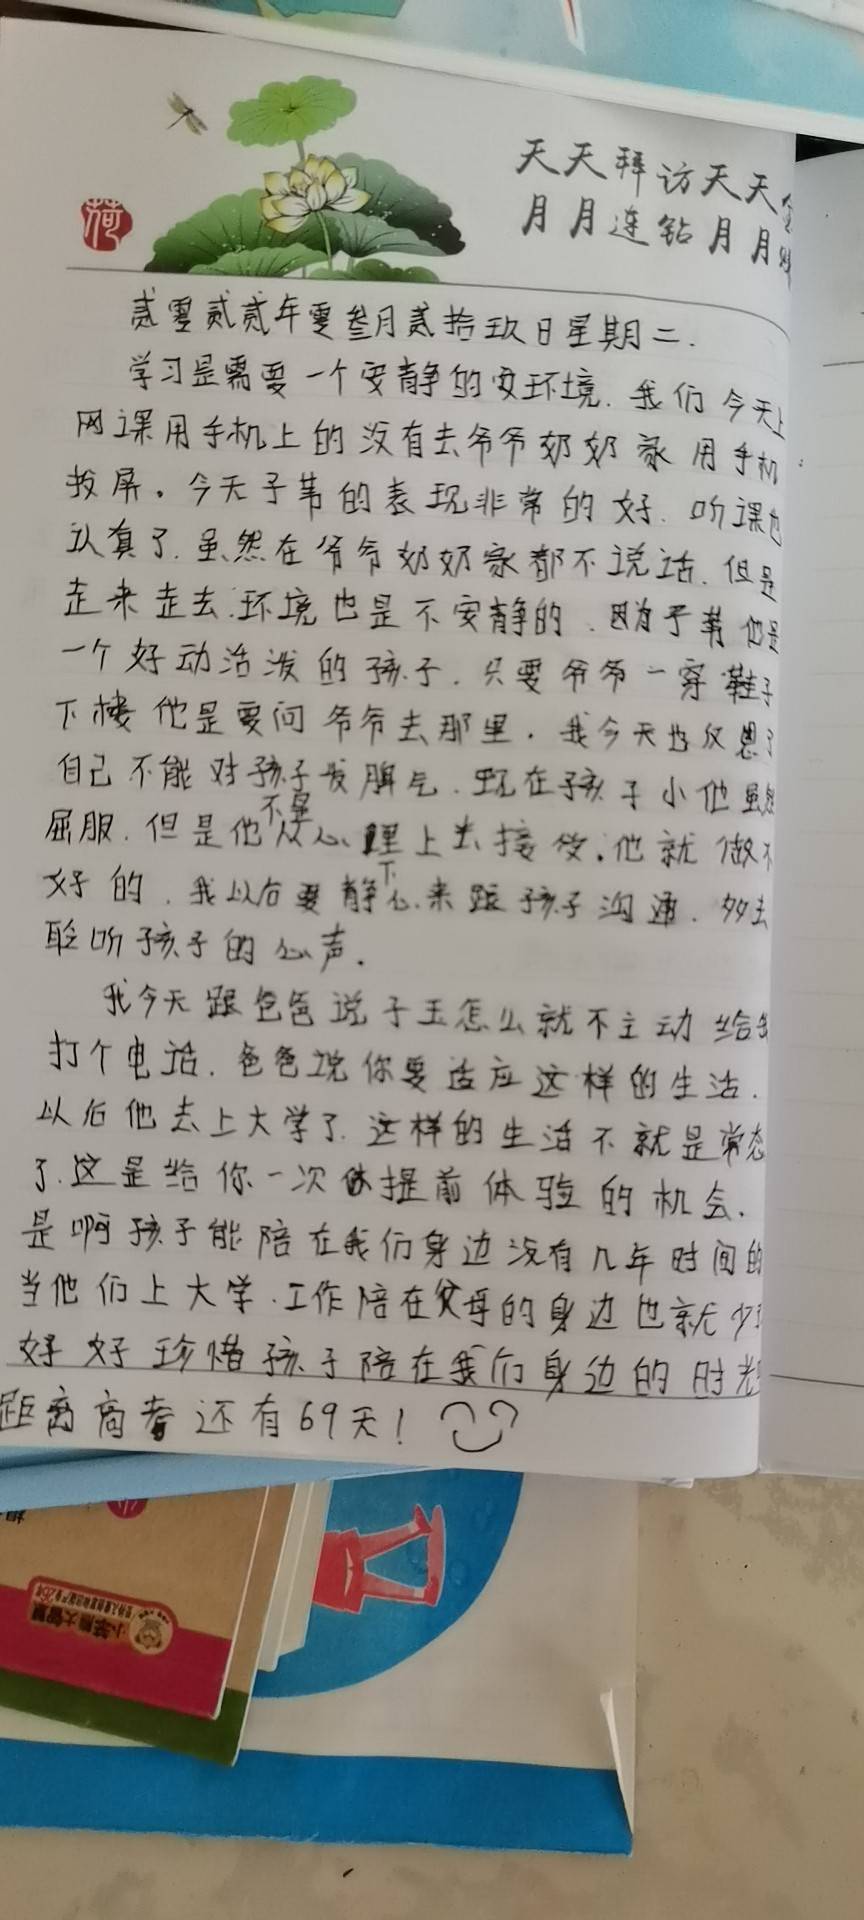 荷
天天拜访天天
月月连钻月月
贰零贰贰年零叁月贰拾玖日星期二.
学习是需要一个安静的安环境.我们今天上
网课用手机上的没有去爷爷奶奶家用手机
投屏。今天子苇的表现非常的好.听课也
认真了.虽然在爷爷奶奶家都不说话.但是
走来走去.环境也是不安静的.因为子苇他是
一个好动活泼的孩子.只要爷爷一穿鞋子
下楼他是要问爷爷去那里.我今天也反思了
自己不能对孩子发脾气.现在孩子小他虽然
屈服.但是他不是从心理上去接受.他就做不
好的.我以后要静下心来跟孩子沟通.多去
聆听孩子的心声.
我今天跟爸爸说子玉怎么就不主动给
打个电话.爸爸说你要适应这样的生活.
以后他去上大学了.这样的生活不就是常态
了.这是给你一次提前体验的机会.
是啊孩子能陪在我们身边没有几年时间的
当他们上大学.工作陪在父母的身边也就少了
好好珍惜孩子陪在我们身边的时光
距离高考还有69天!
小笨熊大智慧